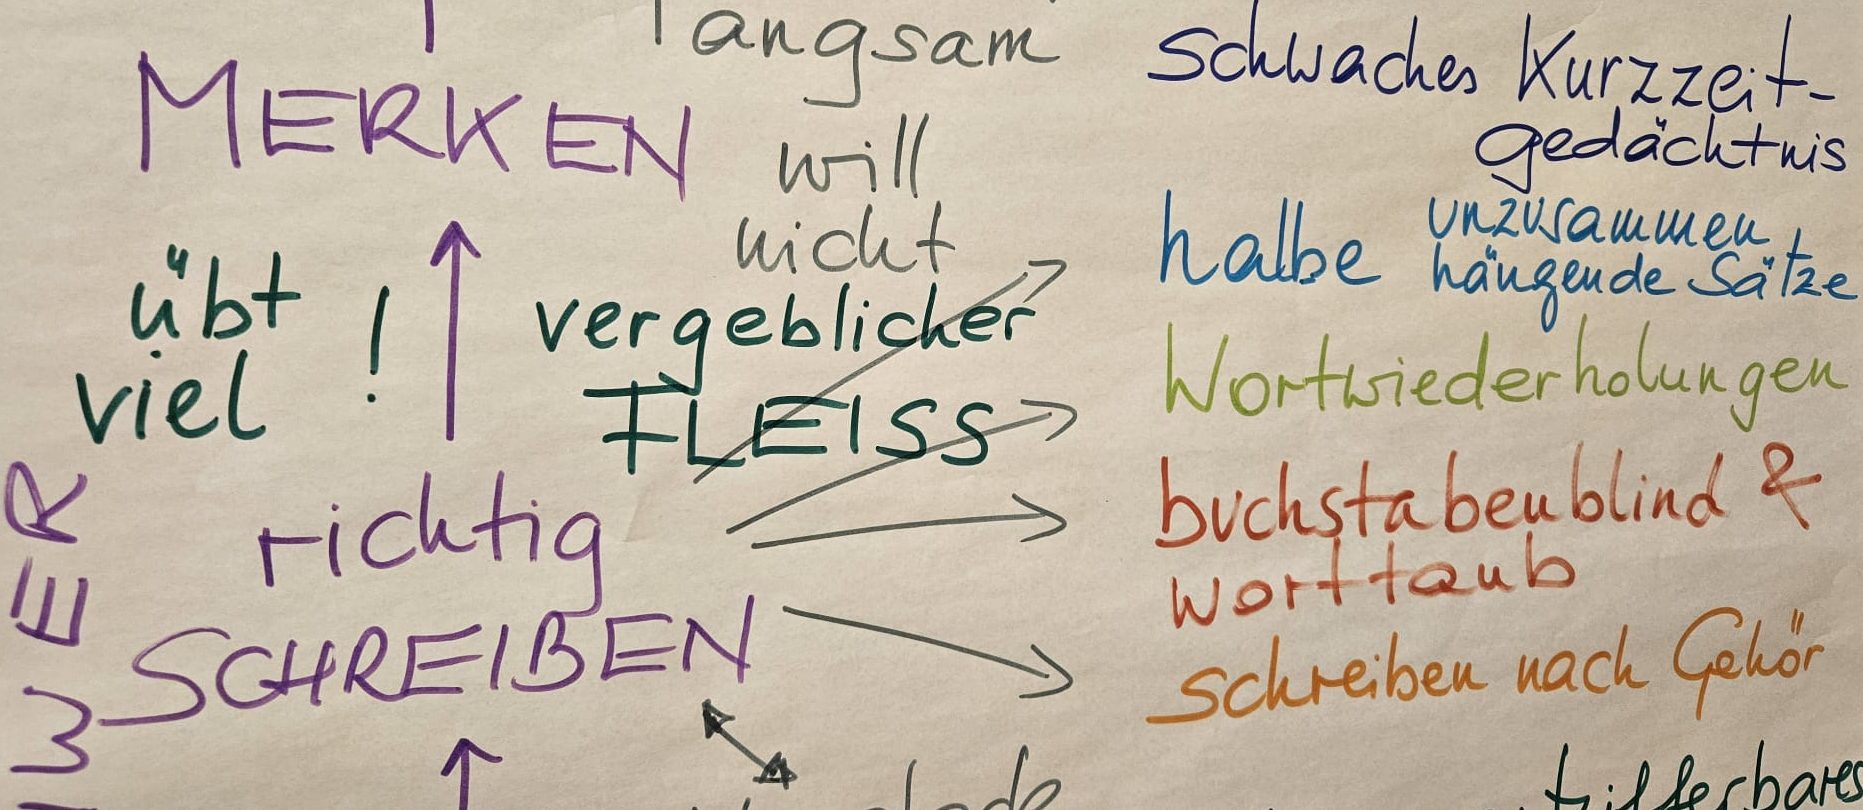 langsam
MERKEN
will
nicht
übt
viel !
vergeblicher
FLEISS
richtig
SCHREIBEN
schwaches Kurzzeit-
gedächtnis
halbe unzusammen
hängende Sätze
Wortwiederholungen
buchstabenblind &
worttaub
schreiben nach Gehör